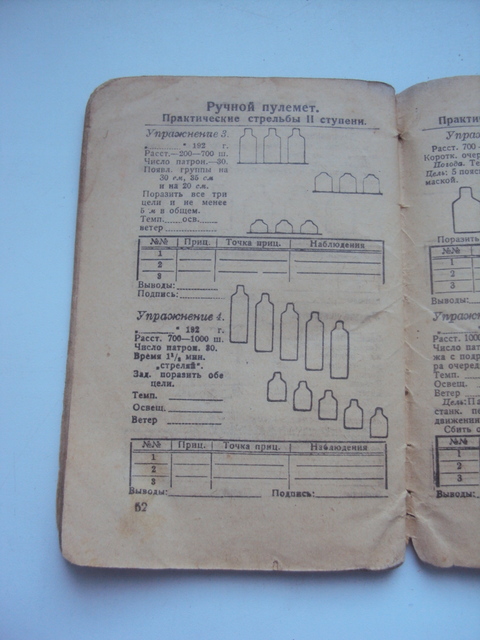 Ручной пулемет.
Практические стрельбы II ступени.
Упражнение 3.
" 192 г.
Расст.—200—700 ш.
Число патрон.—30.
Появл. группы на
30 см, 35 см
и на 20 см.
Поразить все три
цели и не менее
5 м в общем.
Темп. осв.
ветер
№№ Приц. Точка приц. Наблюдения
1
2
3
Выводы:
Подпись:
Упражнение 4.
" 192 г.
Расст. 700—1000 ш.
Число патрон. 30.
Время 1½ мин.
„стреляй".
Зад. поразить обе
цели.
Темп.
Освещ.
Ветер
№№ Приц. Точка приц. Наблюдения
1
2
3
Выводы: Подпись:
52
Практи
Упра
Расст. 700
Коротк. очер
Погода. Те
Цель: 5 пояс
маской.
Поразить
№№
1
2
3
Выводы:
Упраж
Расст. 1000
Число пат
жа с подр
ра очеред
Темп.
Освещ.
Ветер
Цель: Па
станк. пе
движении
Сбить с
№№
1
2
3
Выводы: